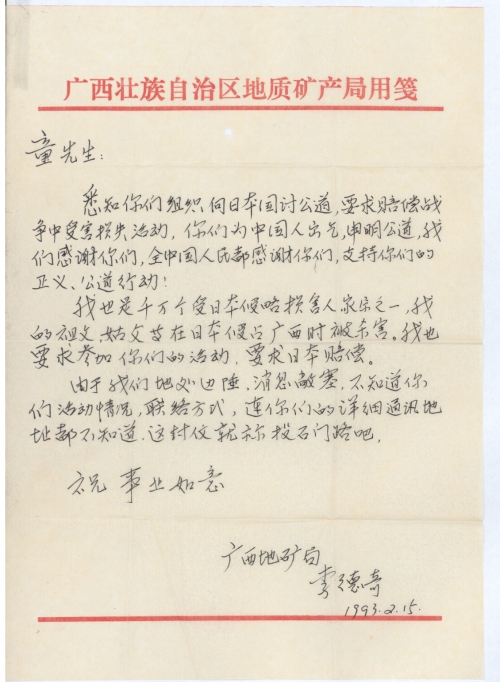 广西壮族自治区地质矿产局用笺
童先生：
悉知你们组织向日本国讨公道，要求赔偿战
争中受害损失活动，你们为中国人出气，申明公道，我
们感谢你们，全中国人民都感谢你们，支持你们的
正义、公道行动！
我也是千万个受日本侵略损害人家属之一，我
的祖父、姑父等在日本侵占广西时被杀害。我也
要求参加你们的活动，要求日本赔偿。
由于我们地处边陲，消息敝塞，不知道你
们活动情况，联络方式，连你们的详细通讯地
址都不知道，这封仅就称投石门路吧，
祝 事业如意
广西地矿局
李德奇
1993.2.15.